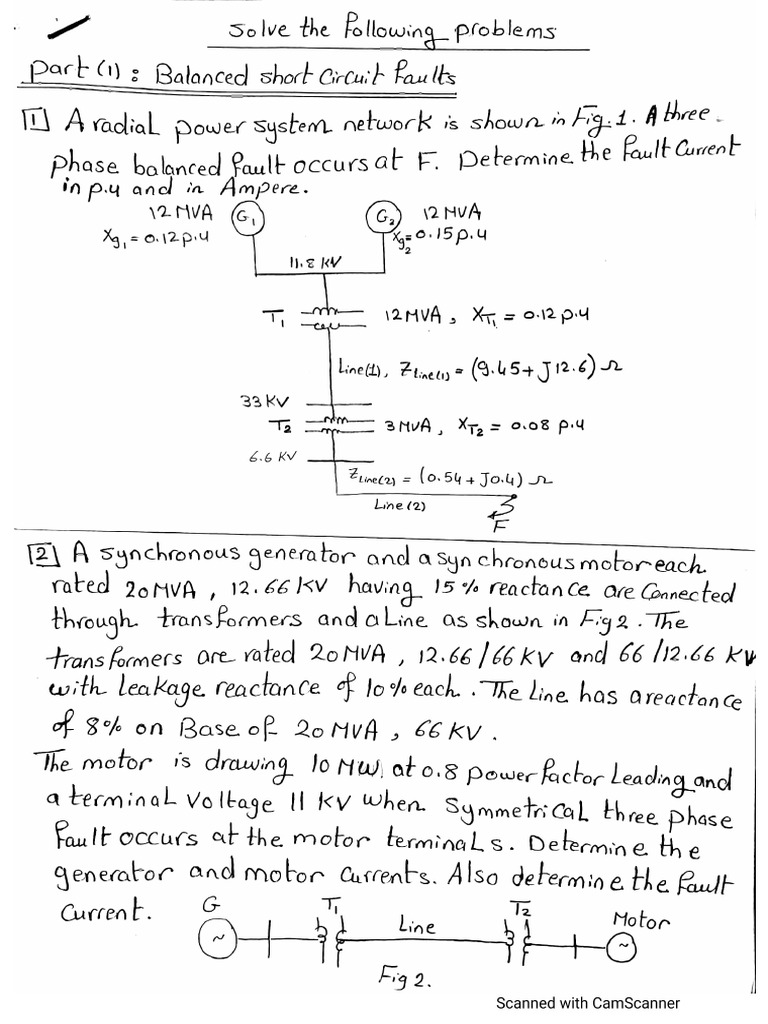 Solve the Following problems
Part (1) : Balanced short Circuit Faults
1 A radial power system network is shown in Fig. 1. A three-
phase balanced fault occurs at F. Determine the fault Current
in p.u and in Ampere.
12 MVA G1 G2 12 MVA
Xg1 = 0.12 p.u Xg2 = 0.15 p.u
11.8 KV
T1 12 MVA, XT1 = 0.12 p.u
Line(1), ZLine(1) = (9.45 + J 12.6) Ω
33 KV
T2 3 MVA, XT2 = 0.08 p.u
6.6 KV
ZLine(2) = (0.54 + J0.4) Ω
Line (2)
F
2 A synchronous generator and a synchronous motor each
rated 20 MVA, 12.66 KV having 15 % reactance are Connected
through transformers and a Line as shown in Fig 2. The
transformers are rated 20 MVA, 12.66 / 66 KV and 66 / 12.66 KV
with Leakage reactance of 10 % each. The Line has a reactance
of 8 % on Base of 20 MVA, 66 KV.
The motor is drawing 10 MW at 0.8 power factor Leading and
a terminal Voltage 11 KV when Symmetrical three phase
fault occurs at the motor terminals. Determine the
generator and motor Currents. Also determine the fault
Current.
G T1 Line T2 Motor
Fig 2.
Scanned with CamScanner